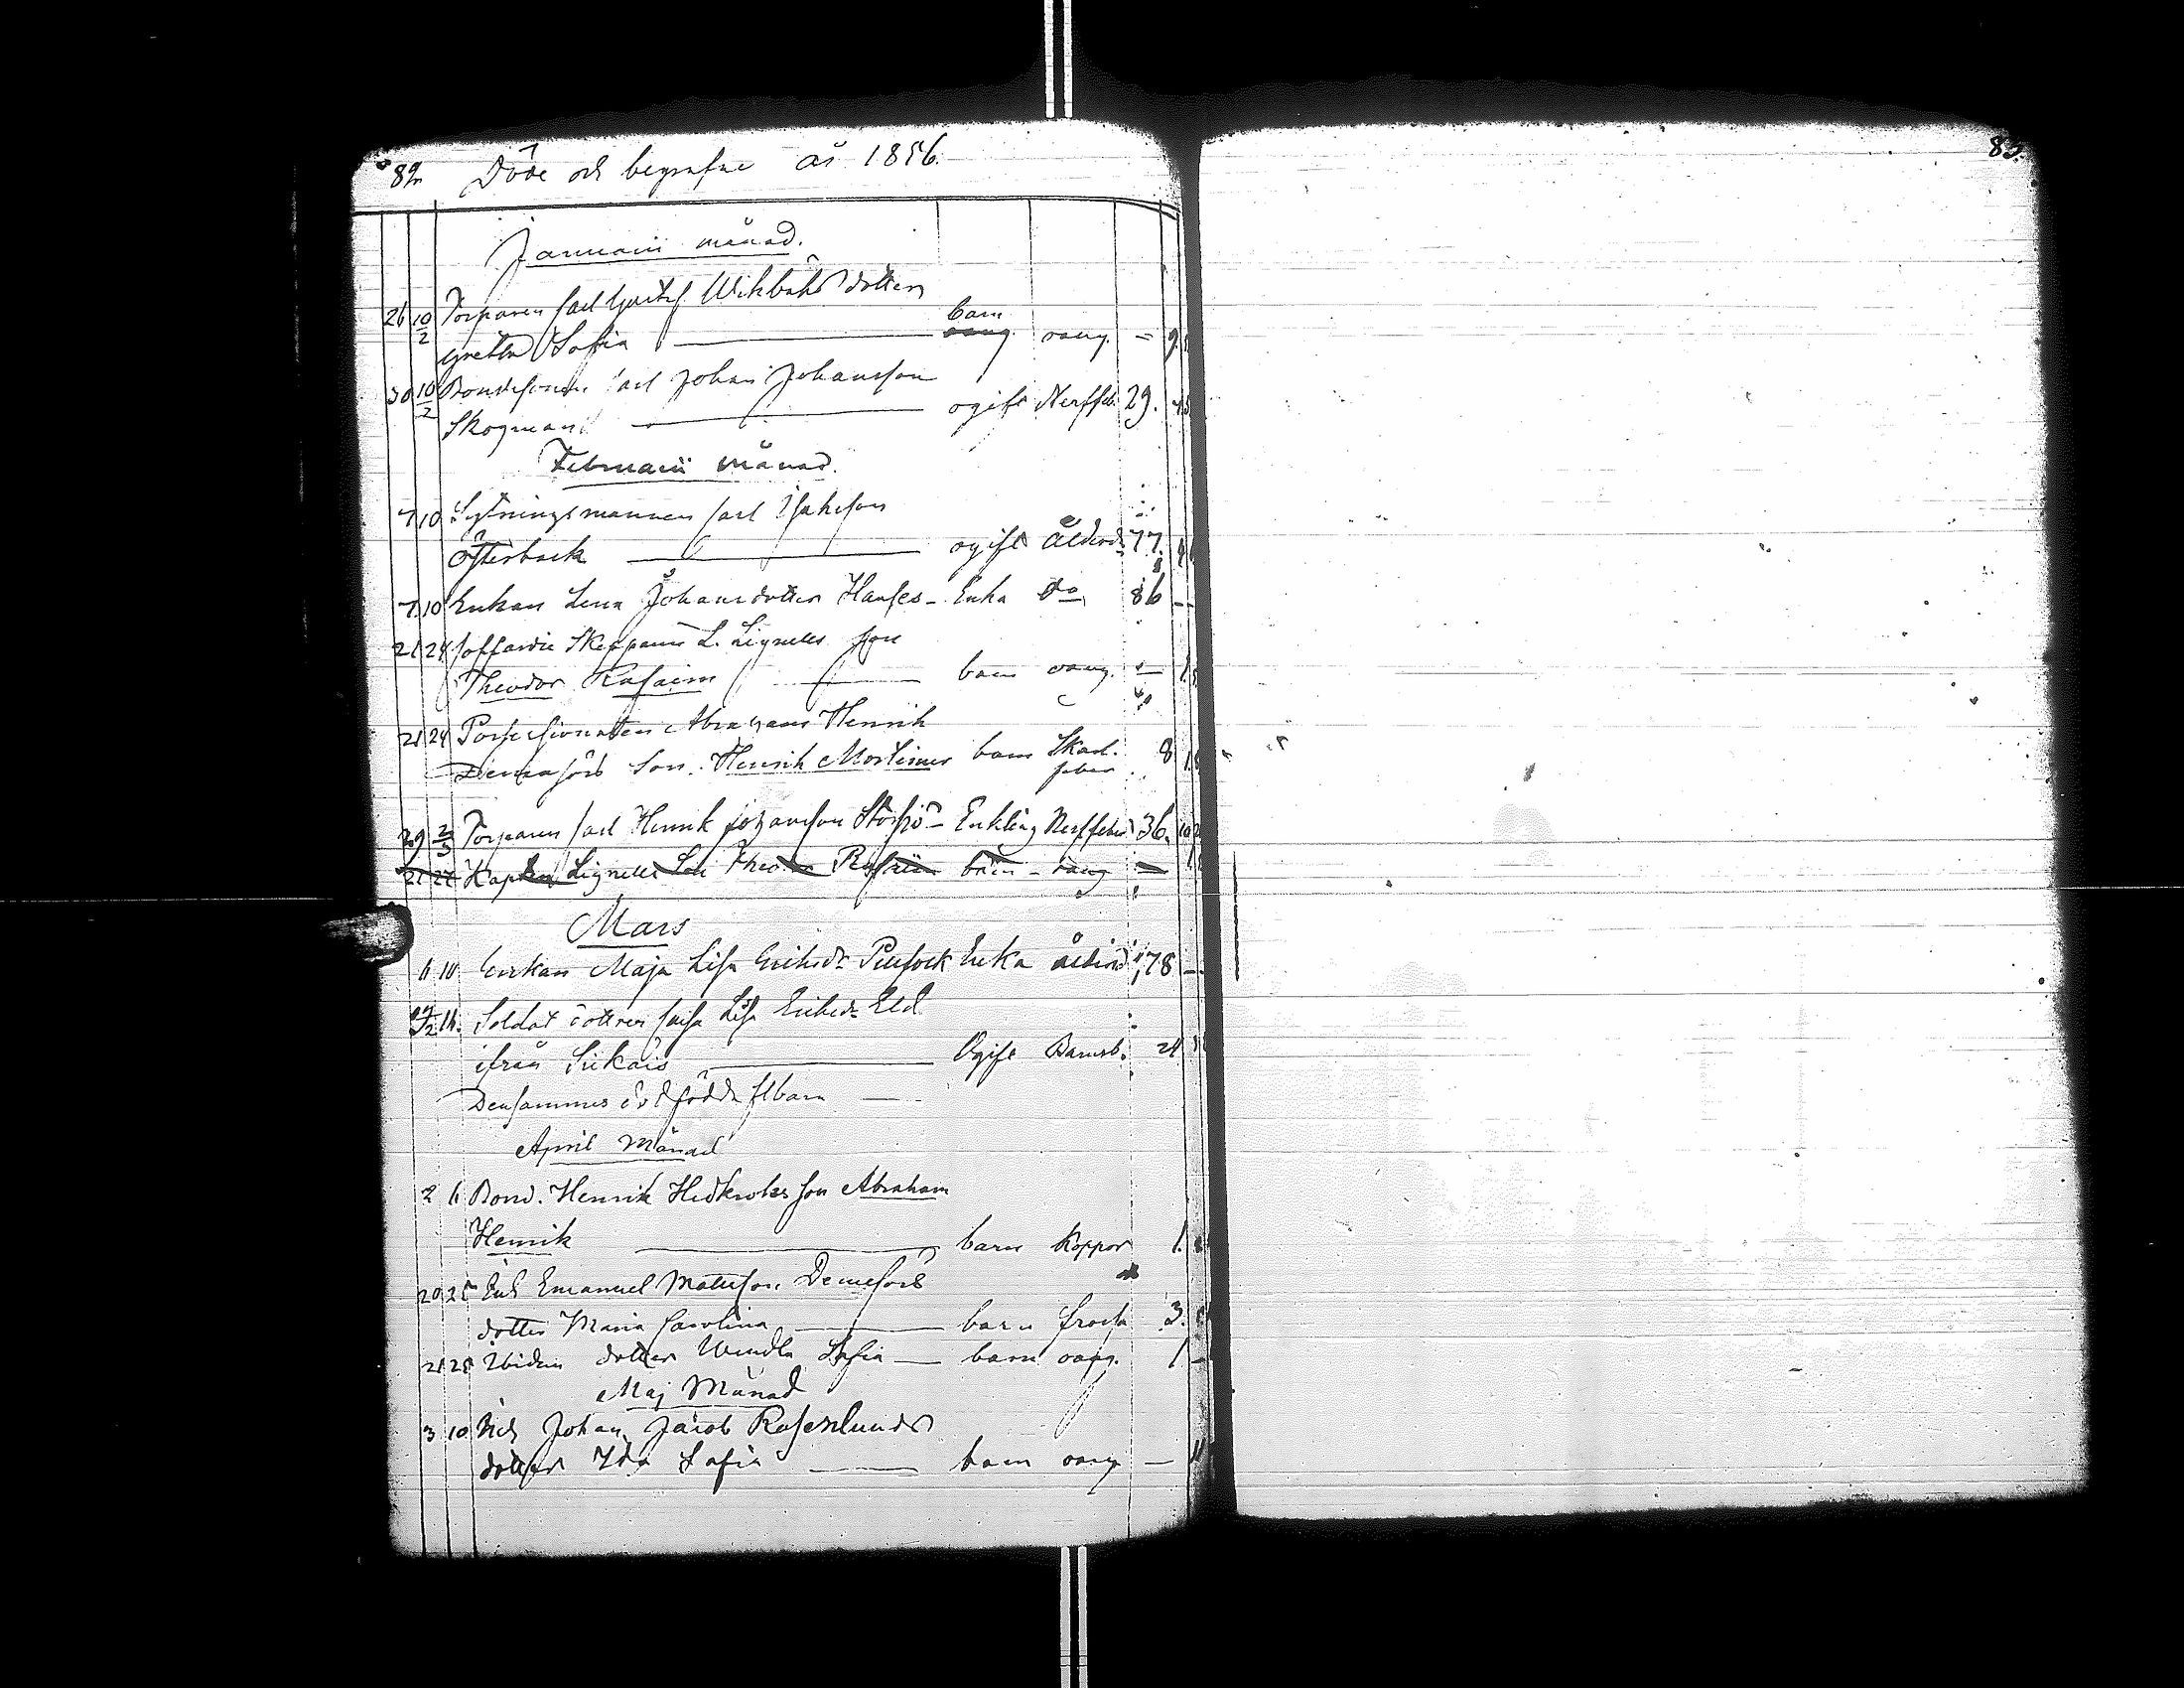 82. Döde och begrafne år 1856.
83.
Januarii månad.
26 10/2 Torparen Carl Gustaf Wikbäks dotter
Greta Sofia — barn oang. — 9
30 10/2 Bondesonen Carl Johan Johansson
Skogman — ogift Nerffeb. 29.
Februarii månad.
7 10 Sytningsmannen Carl Isaksson
Österback — ogift Ålderd. 77.
7 10 Enkan Lena Johansdotter Hanses – Enka do 86 —
21 24 Coffardie Skepparen L. Lignells son
Theodor Rafaim — barn oang. — 1
21 24 Possessionaten Abraham Henrik
Dennefors Son Henrik Mortimer barn Skarl. 8
feber
29 2/3 Torparen Carl Henrik Johansson Storsjö – Enkling Nerffeber 36. 10
21 24 Kapten Lignells Son Theodor Rafaim barn – oang —
Mars
6 10 Enkan Maja Lisa Eriksdr Enka ålderd 78 —
14. Soldat dottren Lisa Eriksdr Eld
ifrån — Ogift Barnsb. 24
Densammes dödfödda flbarn —
April Månad
2 6 Bond. Henrik son Abraham
Henrik — barn Koppor 1.
20 25 Emanuel Mattsson Dennefors
dotter Maria Carolina — barn frossa 3.
21 25 Ibidem dotter Wendla Sofia — barn oang. 1 —
Maj Månad
3 10 Johan Jacob Rosenlunds
dotter Ida Sofia — barn oang —